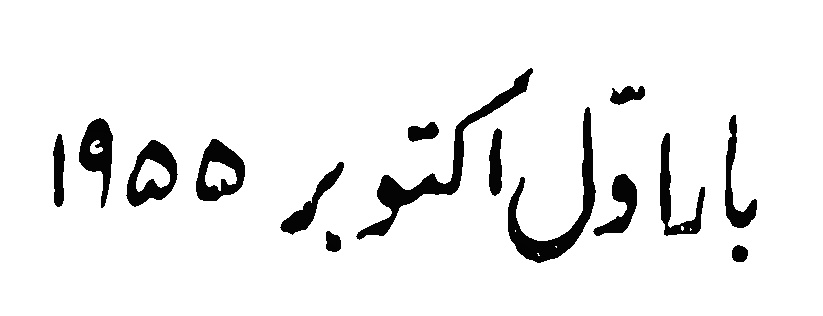 بار اوّل اکتوبر ۱۹۵۵